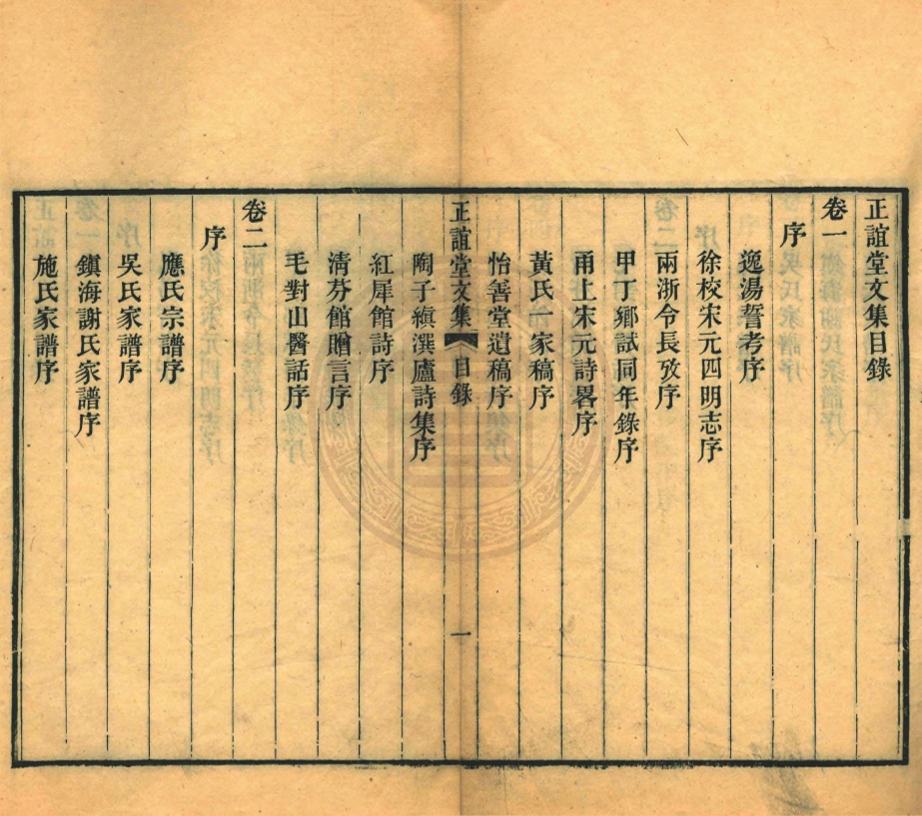 正誼堂文集目錄
卷一
序
逸湯誓考序
徐校宋元四明志序
兩浙令長攷序
甲丁鄉試同年錄序
甬上宋元詩畧序
黃氏一家稿序
怡善堂遺稿序
正誼堂文集 目錄 一
陶子縝潠廬詩集序
紅犀館詩序
清芬館贈言序
毛對山醫話序
卷二
序
應氏宗譜序
吳氏家譜序
鎮海謝氏家譜序
施氏家譜序